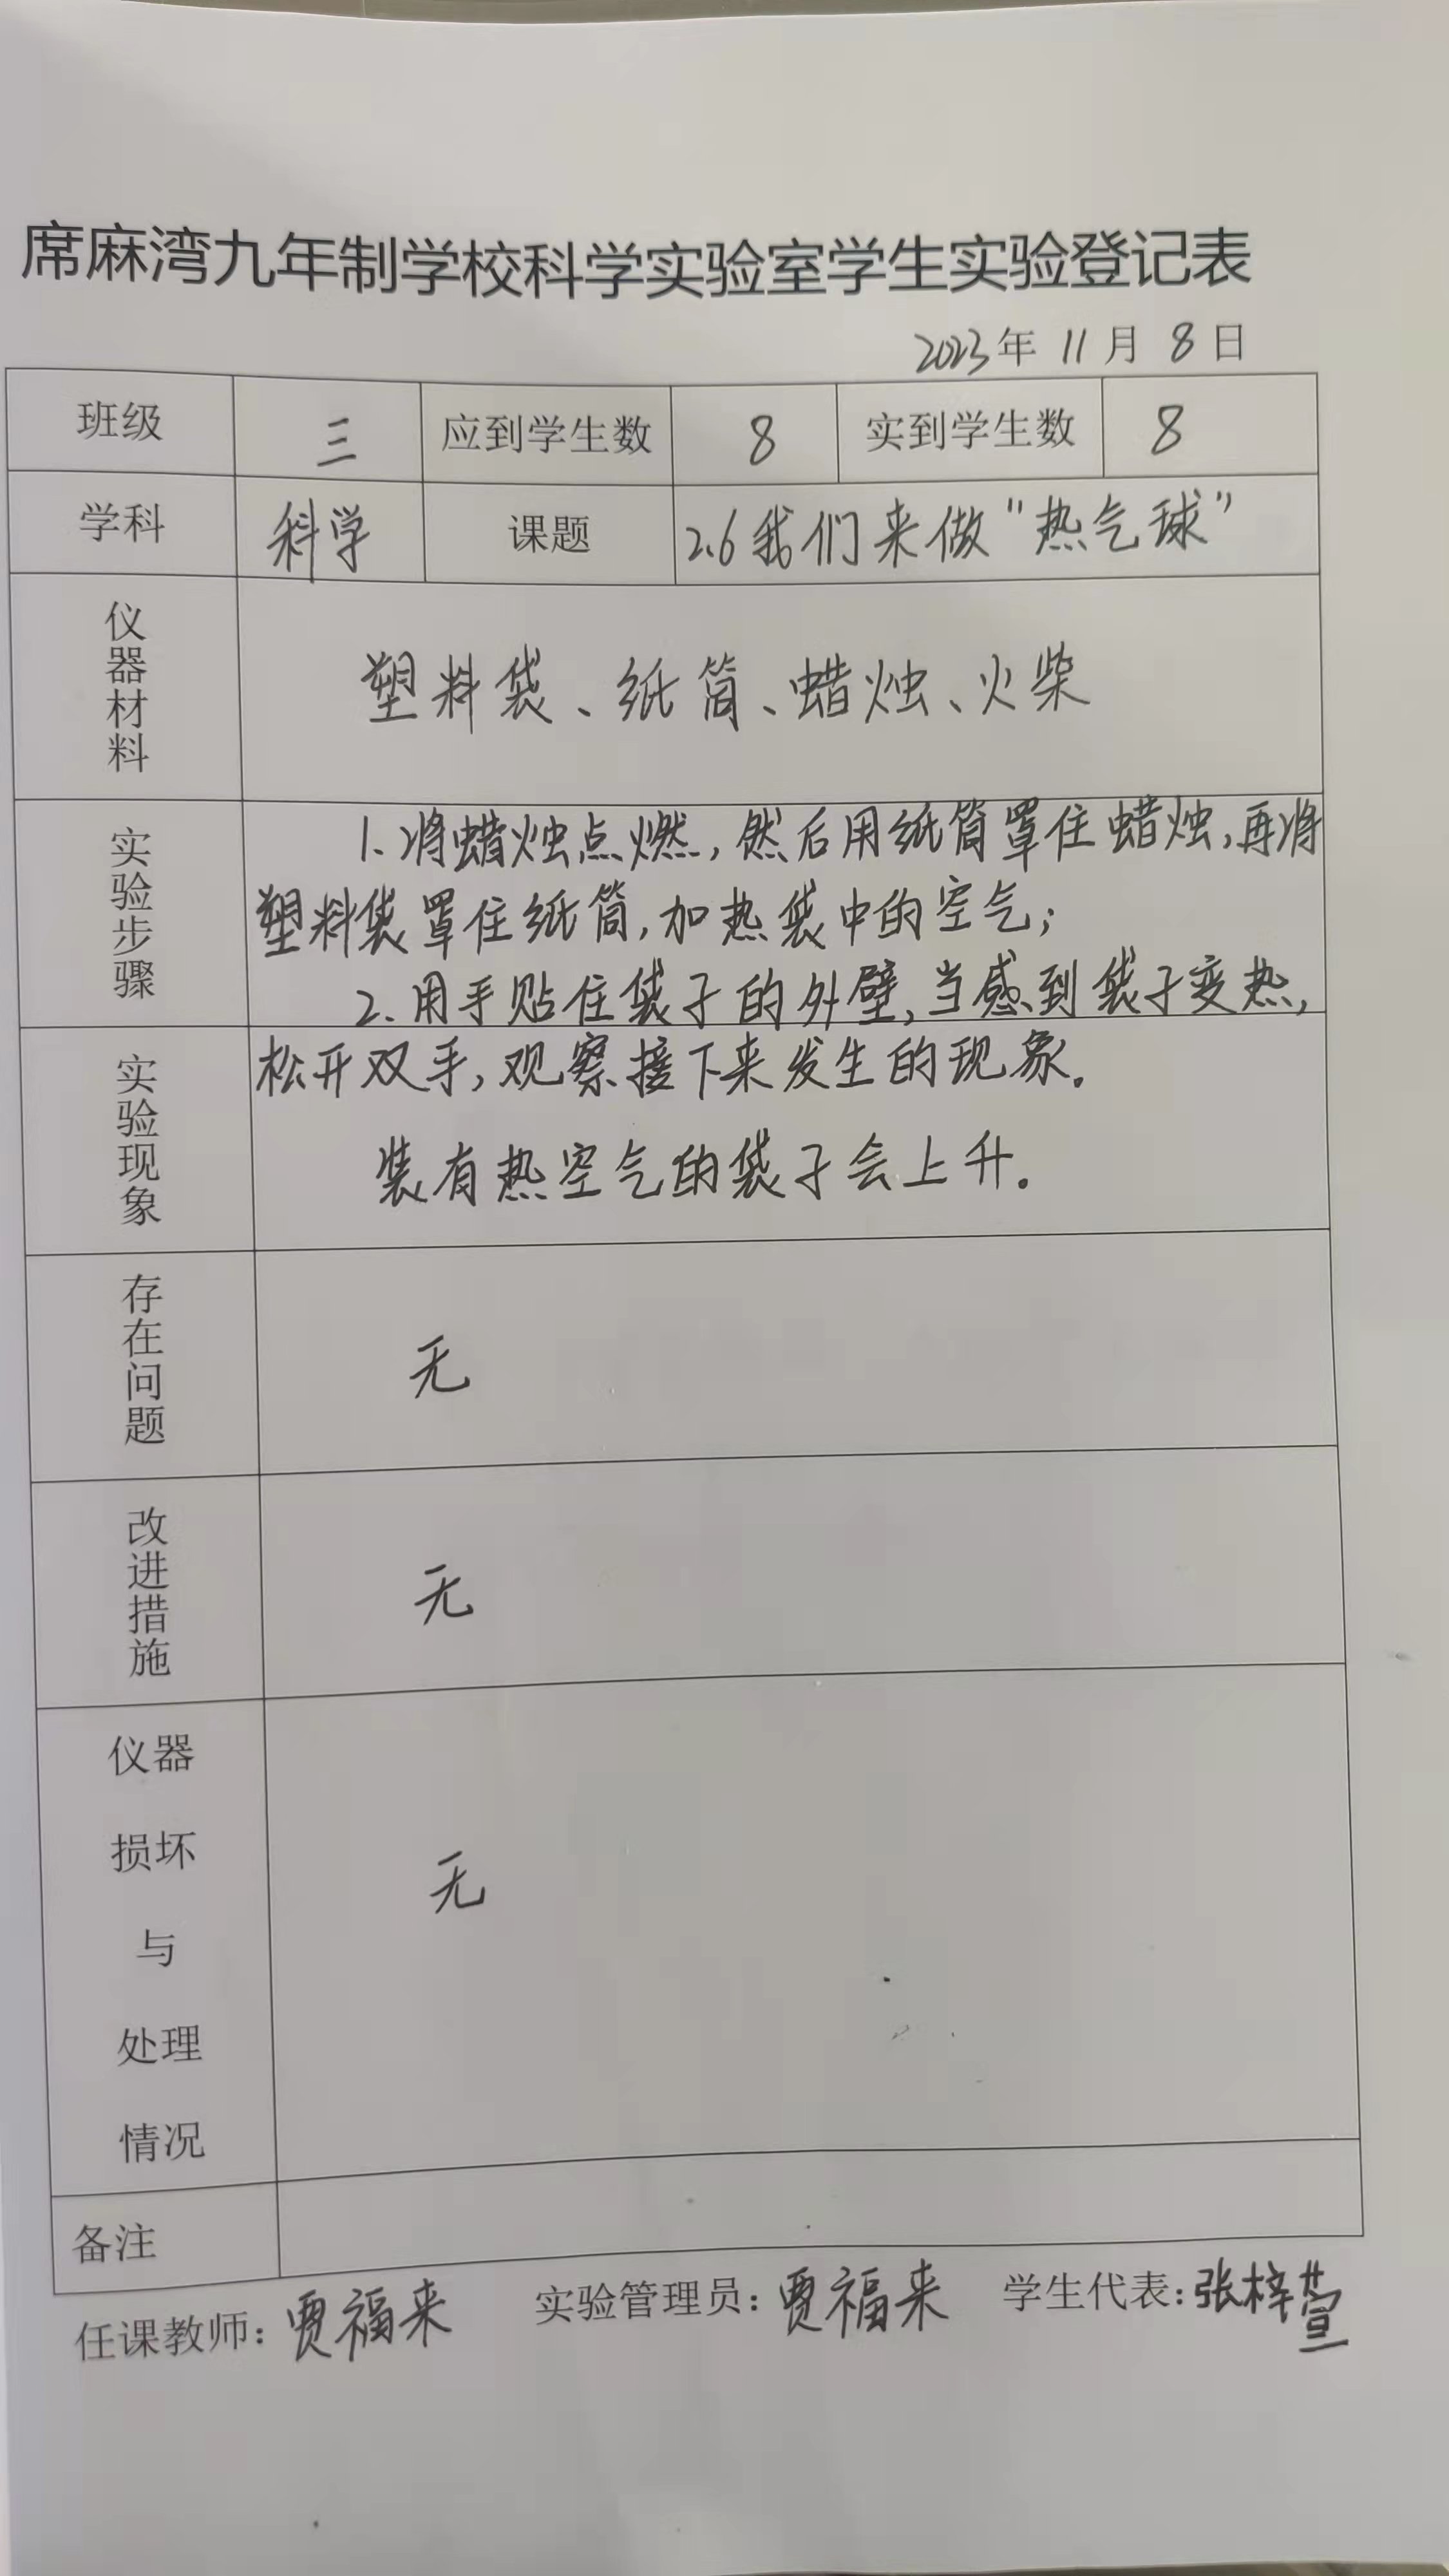 席麻湾九年制学校科学实验室学生实验登记表
2023年 11月 8日
班级 三 应到学生数 8 实到学生数 8
学科 科学 课题 2.6我们来做“热气球”
仪器材料 塑料袋、纸筒、蜡烛、火柴
实验步骤
1.将蜡烛点燃,然后用纸筒罩住蜡烛,再将
塑料袋罩住纸筒,加热袋中的空气;
2.用手贴住袋子的外壁,当感到袋子变热,
松开双手,观察接下来发生的现象.
实验现象
装有热空气的袋子会上升。
存在问题 无
改进措施 无
仪器
损坏
与
处理
情况
无
备注
任课教师:贾福来 实验管理员:贾福来 学生代表:张梓萱